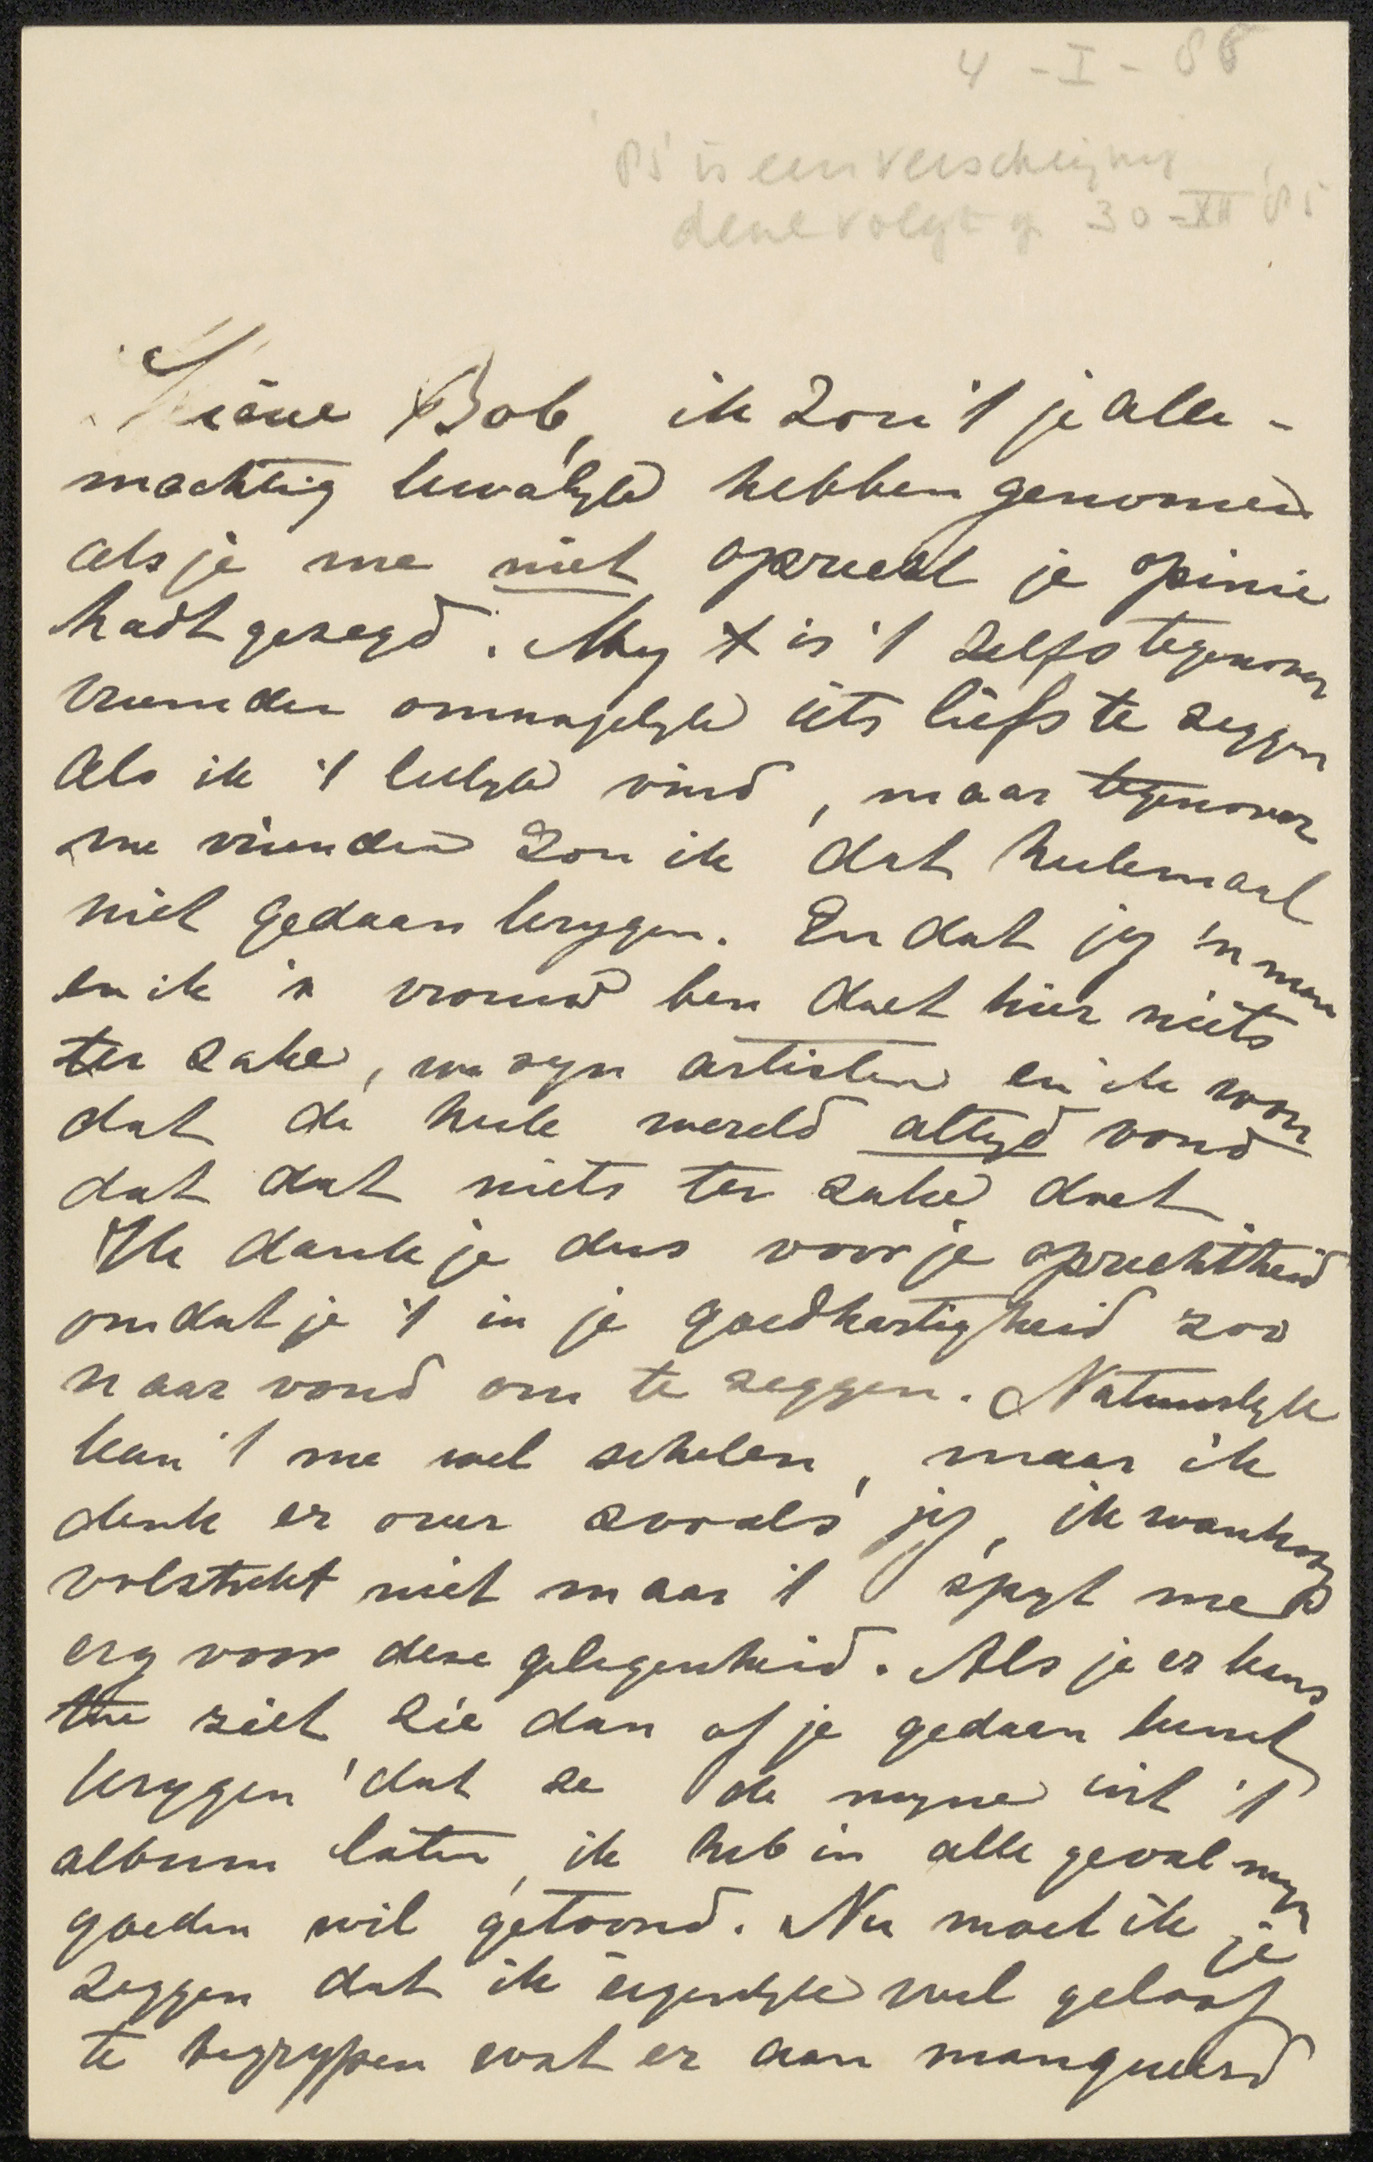 4 - I - 86
85 is een verschrijving
deze volgt op 30-XII '85
Bob, ik zou 't je alle-
machtig kwalyk hebben genomen
als je me niet oprecht je opinie
hadt gezegd. My is 't zelfs tegenover
vreemden onmogelyk iets liefs te zeggen
als ik 't leelyk vind, maar tegenover
me vrienden zou ik dat heelemaal
niet gedaan krygen. En dat jy 'n man
en ik 'n vrouw ben doet hier niets
ter zake, we zyn artisten en ik wou
dat de heele wereld altyd vond
dat dat niets ter zake doet.
Ik dank je dus voor je oprechtheid
omdat je 't in je goedhartigheid zoo
naar vond om te zeggen. Natuurlyk
kan 't me wel schelen, maar ik
denk er over zooals jy, ik wanhoop
volstrekt niet maar 't spyt me
erg voor deze gelegenheid. Als je er kans
toe ziet zie dan of je gedaan kunt
krygen dat ze de myne uit 't
album laten, ik heb in alle geval myn
goeden wil getoond. Nu moet ik je
zeggen dat ik eigenlyk wel geloof
te begrypen wat er aan manqueerd